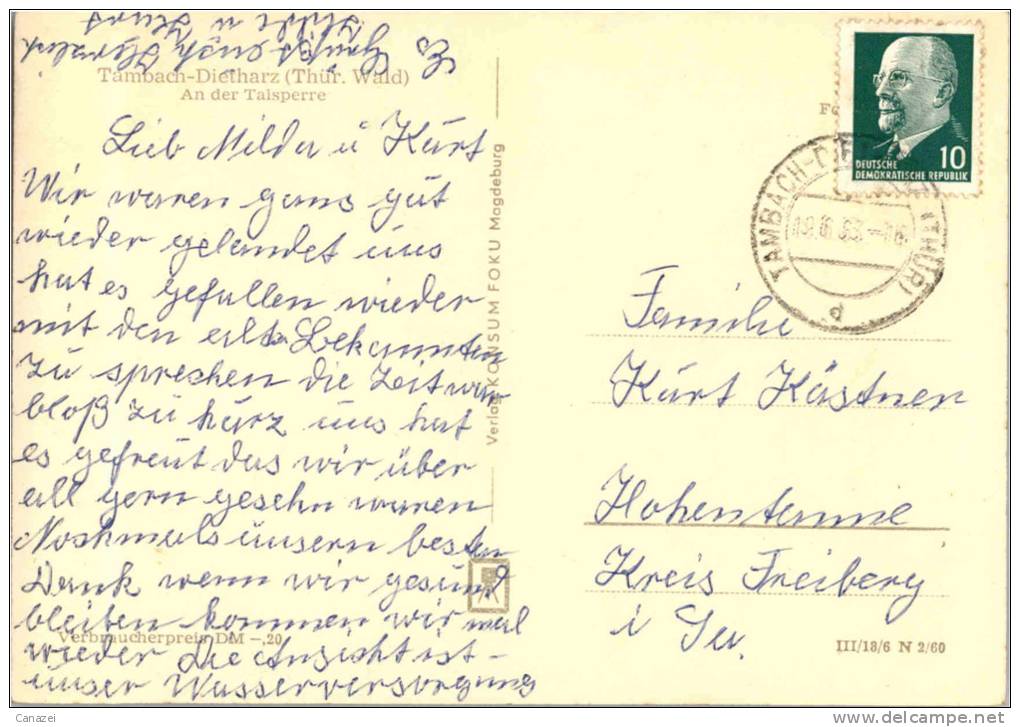 Es Grüßt euch Herzlich
Hilde u Hans
Tambach-Dietharz (Thür. Wald)
An der Talsperre
Lieb Milda u Kurt
Wir waren gans gut
wieder gelandet uns
hat es gefallen wieder
mit den alten Bekannten
zu sprechen die Zeit war
bloß zu kurz uns hat
es gefreut das wir über
all gern gesehn waren
Nochmals unsern besten
Dank wenn wir gesund
bleiben kommen wir mal
wieder Die Ansicht ist
unser Wasserversorgung
Verbraucherpreis DM –,20
Verlag KONSUM FOKU Magdeburg
DEUTSCHE
DEMOKRATISCHE REPUBLIK
10
TAMBACH-D (THÜR)
p
Familie
Kurt Kästner
Hohentanne
Kreis Freiberg
i Sa.
III/18/6 N 2/60
Canazei
www.delcampe.net